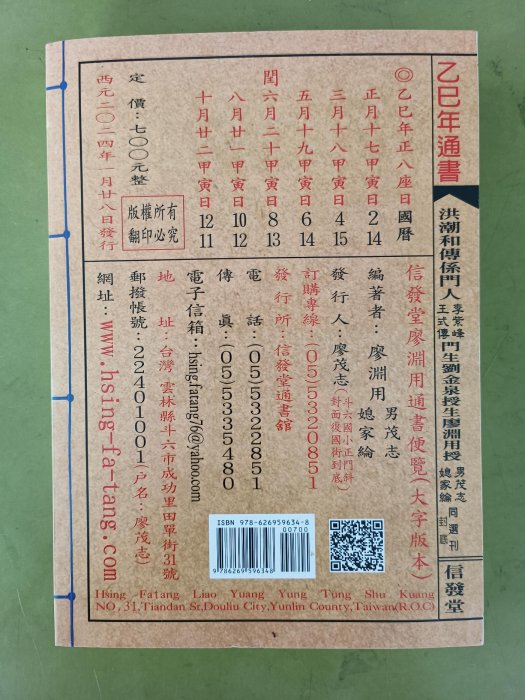 乙巳年通書
洪潮和傳係門人 李紫峰 王式傳 門生劉金泉授生廖淵用授 男茂志 媳家綸 同選刊 封底
信發堂
◎乙巳年正八座日 國曆
正月十七甲寅日 2 14
三月十八甲寅日 4 15
五月十九甲寅日 6 14
閏六月二十甲寅日 8 13
八月廿一甲寅日 10 12
十月廿二甲寅日 12 11
定價：七○○元整
版權所有
翻印必究
西元二○二四年一月廿八日發行
信發堂廖淵用通書便覽(大字版本)
編著者：廖淵用 男茂志 媳家綸
發行人：廖茂志(斗六國小正門斜對面復國街到底)
訂購專線：(05)5320851
發行所：信發堂通書舘
電話：(05)5322851
傳真：(05)5335480
電子信箱：hsing.fatang76@yahoo.com
地址：台灣 雲林縣斗六市成功里田單街31號
郵撥帳號：22401001(户名：廖茂志)
網址：www.hsing-fa-tang.com
ISBN 978-626959634-8
00700
9 786269 596348
Hsing -Fatang Liao Yuang Yung Tung Shu Kuang
NO,31,Tiandan St,Douliu City,Yunlin County,Taiwan(R.O.C)